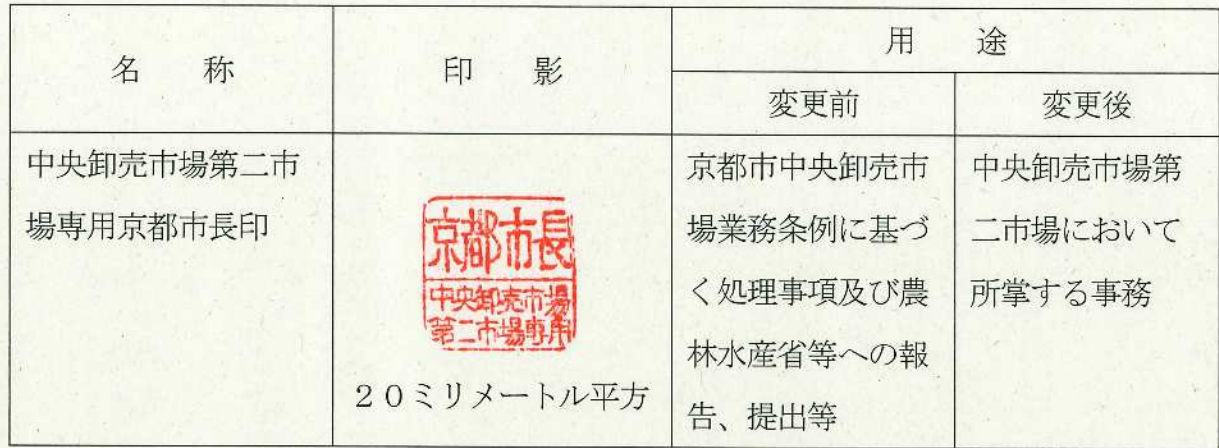 名　称
印　影
用　途
変更前
変更後
中央卸売市場第二市
場専用京都市長印
京都市長
中央卸売市場
第二市場専用
20ミリメートル平方
京都市中央卸売市
場業務条例に基づ
く処理事項及び農
林水産省等への報
告、提出等
中央卸売市場第
二市場において
所掌する事務